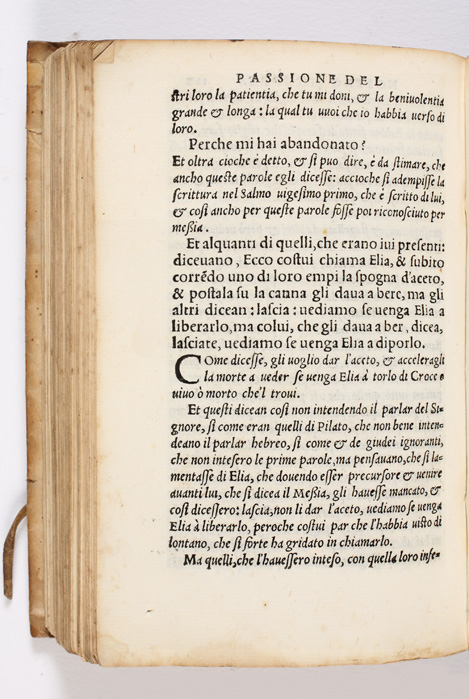 PASSIONE DEL
ſtri loro la patientia, che tu mi doni, & la beniuolentia
grande & longa : la qual tu uuoi che io habbia uerſo di
loro.
Perche mi hai abandonato ?
Et oltra cioche è detto, & ſi puo dire, è da ſtimare, che
ancho queſte parole egli diceſſe: accioche ſi adempiſſe la
ſcrittura nel Salmo uigeſimo primo, che è ſcritto di lui,
& coſi ancho per queſte parole foſſe poi riconoſciuto per
meſsia.
Et alquanti di quelli, che erano iui preſenti:
diceuano, Ecco coſtui chiama Elia, & ſubito
corrédo uno di loro empi la ſpogna d'aceto,
& poſtala ſu la canna gli daua a bere, ma gli
altri dicean : laſcia : uediamo ſe uenga Elia a
liberarlo, ma colui, che gli daua a ber, dicea,
laſciate, uediamo ſe uenga Elia a diporlo.
COme diceſſe, gli uoglio dar l'aceto, & acceleragli
la morte a ueder ſe uenga Elia à torlo di Croce o
uiuo ò morto che'l troui.
Et queſti dicean coſi non intendendo il parlar del Si-
gnore, ſi come eran quelli di Pilato, che non bene inten-
deano il parlar hebreo, ſi come & de giudei ignoranti,
che non inteſero le prime parole, ma penſauano, che ſi la-
mentaſſe di Elia, che douendo eſſer precurſore & uenire
auanti lui, che ſi dicea il Meſsia, gli haueſſe mancato, &
coſi diceſſero: laſcia, non li dar l'aceto, uediamo ſe uenga
Elia à liberarlo, peroche coſtui par che l'habbia uiſto di
lontano, che ſi forte ha gridato in chiamarlo.
Ma quelli, che l'haueſſero inteſo, con quella loro infe-